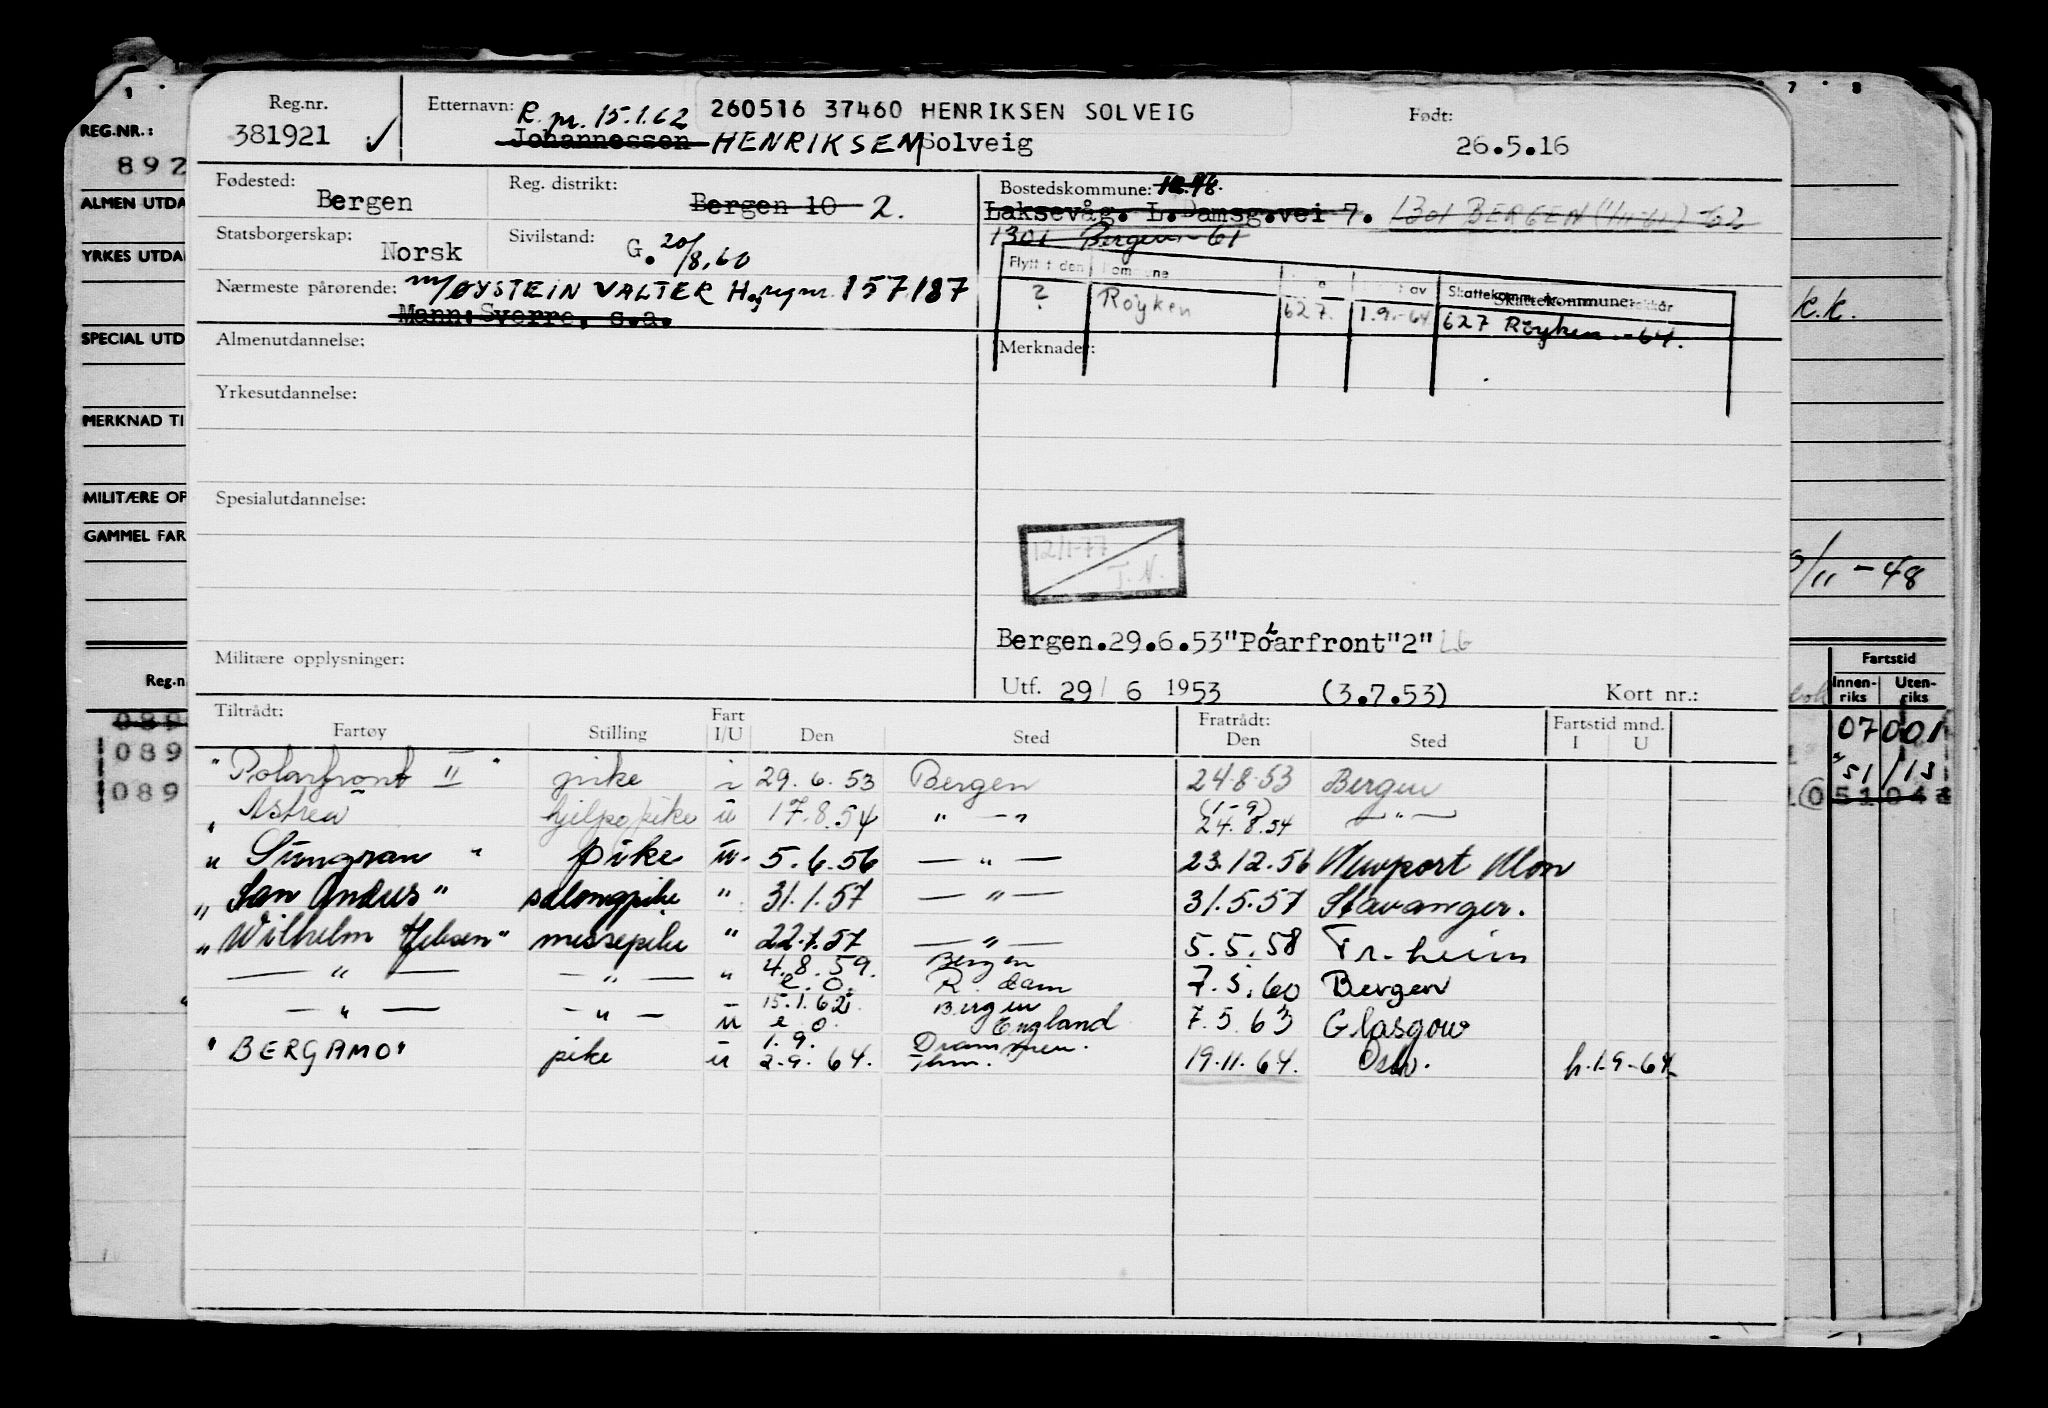 Reg.nr. 381921
Etternavn: R. pr. 15.1.62
260516 37460 HENRIKSEN SOLVEIG
Johannessen HENRIKSEN Solveig
Født: 26.5.16
Fødested: Bergen
Reg. distrikt: Bergen 10 2.
Bostedskommune:
Laksevåg. L.Damsg.vei 7. 1301 BERGEN -62
1301 Bergen -61
Statsborgerskap: Norsk
Sivilstand: G. 20/8.60
Nærmeste pårørende: m/ØYSTEIN VALTER H. regnr. 157187
Mann: Sverre, s.a.
? Røyken 627. 1.9.-64 627 Røyken -64.
Skattekommune:
Almenutdannelse:
Merknader:
Yrkesutdannelse:
Spesialutdannelse:
12/1-77
T.N.
Bergen.29.6.53"Polarfront"2"
Militære opplysninger:
Utf. 29/ 6 1953 (3.7.53) Kort nr.:
Tiltrådt: Fartøy Stilling Fart I/U Den Sted Fratrådt: Den Sted Fartstid mnd. I U
"Polarfront II" pike i 29.6.53 Bergen 24.8.53 Bergen
" Astrea hjelpepike u 17.8.54 " — " (1-9) 24.8.54 — " —
" Sungran " pike u. 5.6.56 — " — 23.12.56 Newport Mon
" San Andres" salongpike " 31.1.57 — " — 31.5.57 Stavanger.
" Wilhelm Jebsen" messepike " 22.7.57 — " — 5.5.58 Tr.heim
— " — — " — " 4.8.59. e.o. Bergen R.dam 7.5.60 Bergen
— " — — " — u 15.1.62 e.o. Bergen England 7.5.63 Glasgow
"BERGAMO" pike u 1.9. 2.9.64. Drammen. 19.11.64. Oslo. h.1.9-64
REG.NR.:
892
ALMEN UTDA
YRKES UTDA
SPECIAL UTD
MERKNAD TI
MILITÆRE OP
GAMMEL FAR
Reg.n
089
089
089
7 8
k.k.
/11-48
Fartstid
Innen-riks Uten-riks
07 001
51 13
51 04